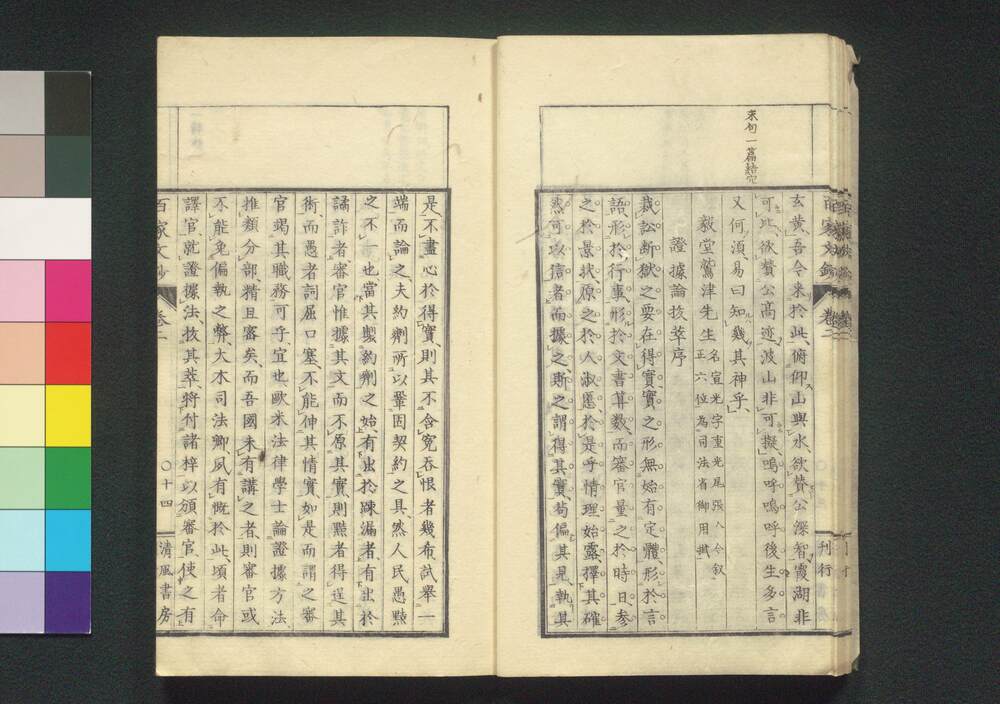 末句一篇結穴
玄黃、吾今來於此、俯仰山與水、欲贊公深智霞湖非
可比、欲贊公高迹波山非可擬、嗚呼嗚呼後生多言
又何須、易曰知幾其神乎、
毅堂鷲津先生
名宣光字重光尾張人今叙
正六位為司法省御用掛
證據論拔萃序
裁訟斷獄之要在得實、實之形無始有定體、形於言
語、形於行事、形於文書算數、而審官量之於時日、參
之於景狀、原之於人淑慝、於是乎情理始露、擇其確
然可以信者而據之、斯之謂得其實、苟偏其見、執其
是、不盡心於得實、則其不含冤吞恨者幾希、試舉一
端而論之、夫約劑所以鞏固契約之具、然人民愚黠
之不一也、當其製約劑之始、有出於疎漏者、有出於
譎詐者、審官惟據其文而不原其實、則黠者得逞其
術、而愚者詞屈口塞、不能伸其情實、如是而謂之審
官竭其職務可乎、宜也歐米法律學士論證據方法、
推類分部、精且審矣、而吾國未有講之者、則審官或
不能免偏執之弊、大木司法卿夙有慨於此、頃者命
譯官、就證據法、拔其萃、將付諸梓以頒審官、使之有
百家文鈔 卷二 〇十四 清風書房